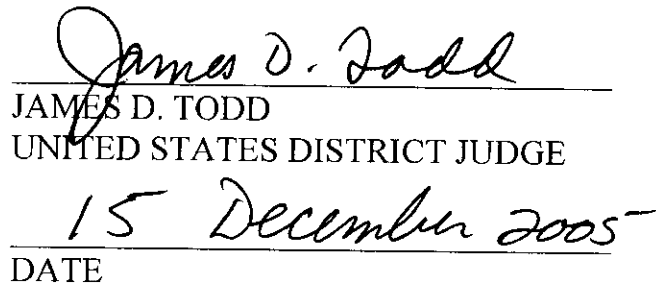 James D. Todd
JAMES D. TODD
UNITED STATES DISTRICT JUDGE
15 December 2005
DATE